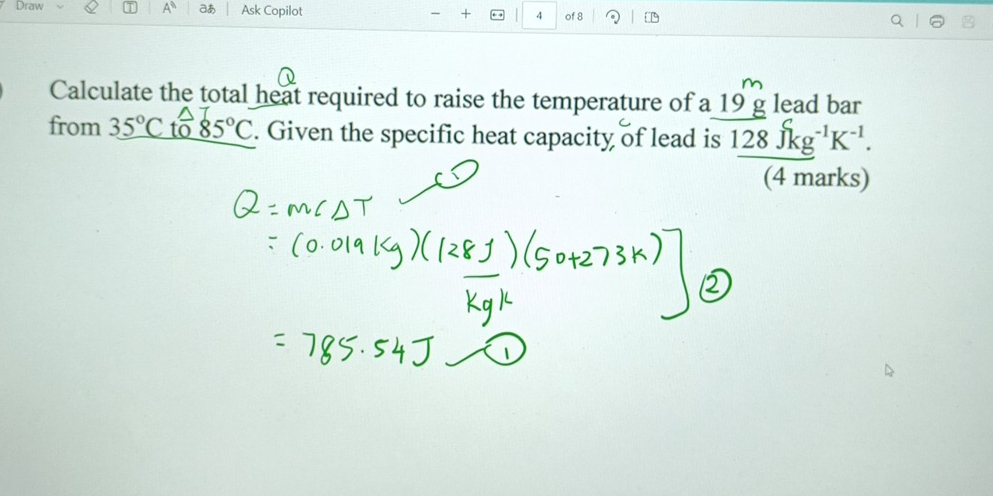 Draw A» aあ Ask Copilot − + 4 of 8
Q m
Calculate the total heat required to raise the temperature of a 19 g lead bar
ΔT c
from 35°C to 85°C. Given the specific heat capacity, of lead is 128 Jkg⁻¹K⁻¹.
(4 marks)
Q = mcΔT 1
= (0.019 kg)(128J/kgK)(50+273K) 2
= 785.54J 1